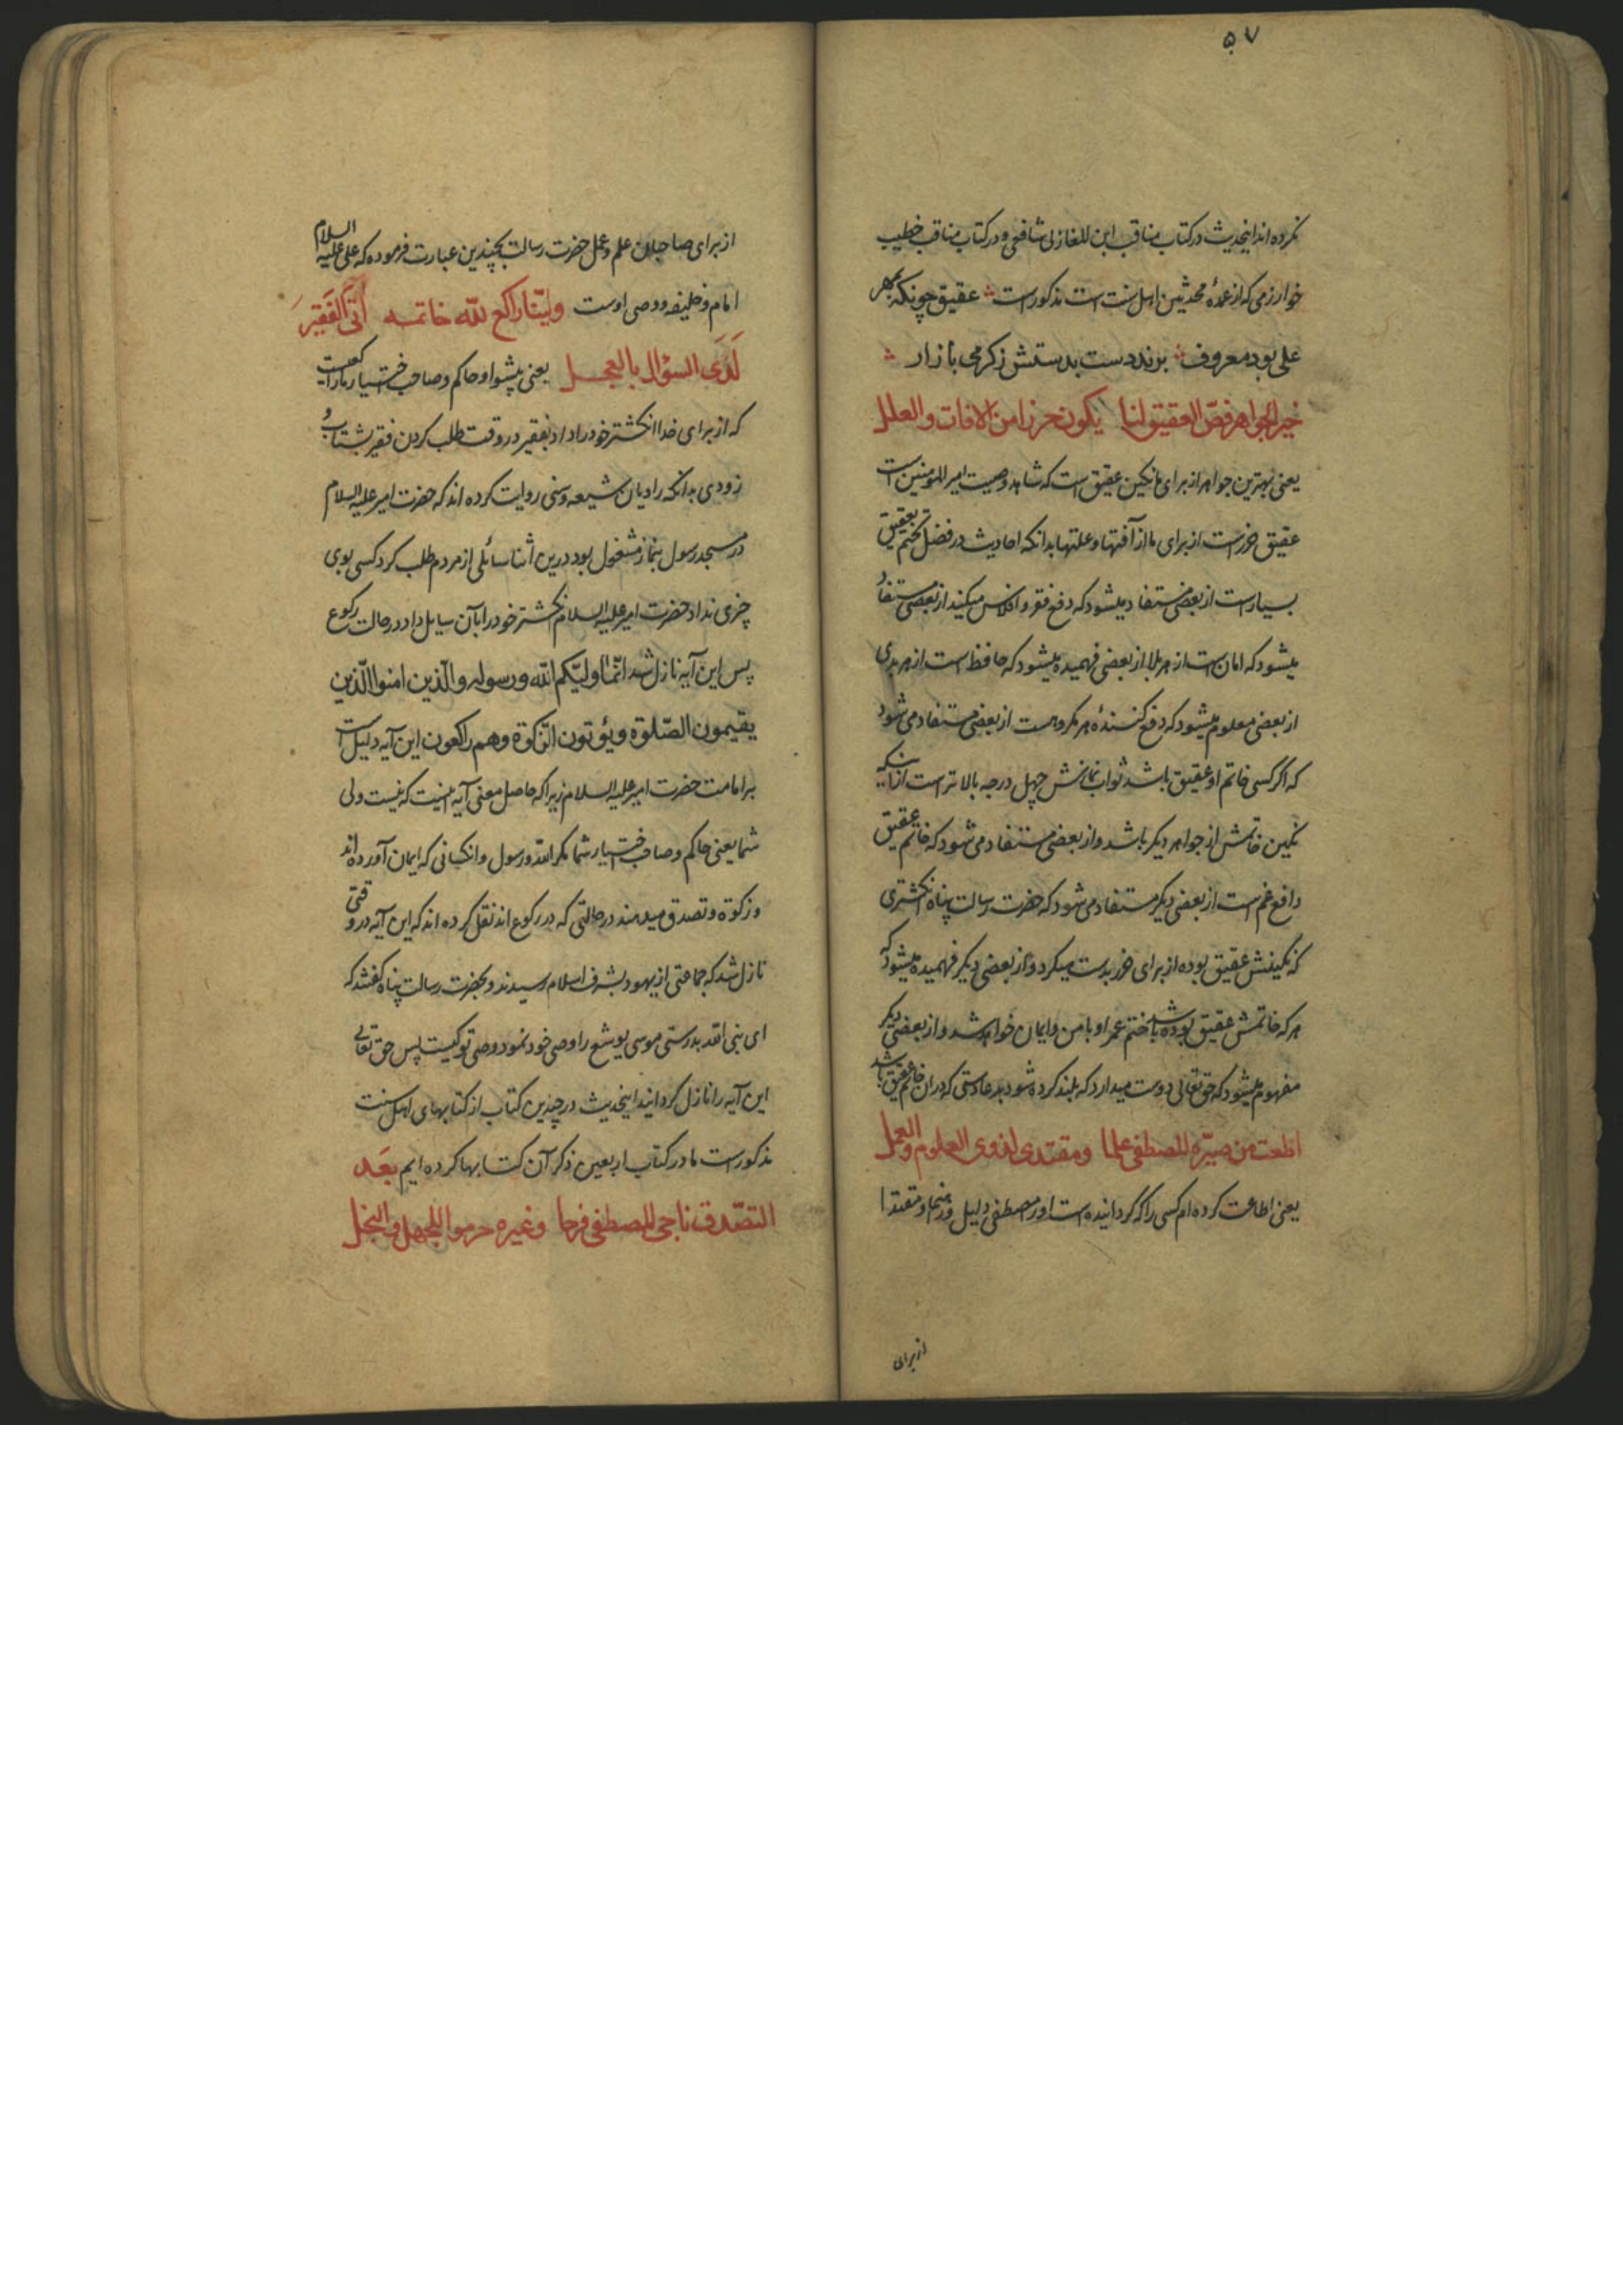 ۵۷
نکرده اند اینحدیث در کتاب مناقب ابن المغازلی شافعی و در کتاب مناقب خطیب
خوارزمی که از عمدهٔ محدثین اهل سنت است مذکور است عقیق چونکه بمهر
علی بود معروف برند دست بدستش ز کرمی بازار
خیر الجواهر فصّ العقیق لنا یکون حرزا من الافات والعلل
یعنی بهترین جواهر از برای ما نکین عقیق است که شاهد وصیت امیر المومنین است
عقیق حرز است از برای ما از آفتها و علتها بدانکه احادیث در فضل تختم بعقیق
بسیار است از بعضی مستفاد میشود که دفع فقر و افلاس میکند از بعضی مستفاد
میشود که امان است از هر بلا از بعضی فهمیده میشود که حافظ است از هر بدی
از بعضی معلوم میشود که دفع کنندهٔ هر مکروهست از بعضی مستفاد می شود
که اکر کسی خاتم او عقیق باشد ثواب نمازش چهل درجه بالاتر است از اینکه
نکین خاتمش از جواهر دیکر باشد و از بعضی مستفاد می شود که خاتم عقیق
دافع غم است از بعضی دیکر مستفاد می شود که حضرت رسالت پناه انکشتری
که نکینش عقیق بوده از برای حرز بدست میکرد و از بعضی دیکر فهمیده میشود که
هر که خاتمش عقیق بوده باشد ختم عمر او با من و ایمان خواهد شد و از بعضی دیکر
مفهوم میشود که حق تعالی دوست میدارد که بلند کرده شود بدعا دستی که در ان خاتم عقیق باشد
اطعت من صیّره المصطفی علما ومقتدی لذوی العلوم والعمل
یعنی اطاعت کرده ام کسی را که کردانیده است او را مصطفی دلیل و رهنما و مقتدا
از برای
از برای صاحبان علم و عمل حضرت رسالت بچندین عبارت فرموده که علی علیه السلام
امام و خلیفه و وصی اوست ولیّنا راکع للّه خاتمه أتی الفقیر
لدی السؤال بالعجل یعنی پیشوا و حاکم و صاحب اختیار ما راکعیست
که از برای خدا انکشتر خود را داد بفقیر در وقت طلب کردن فقیر بشتاب و
زودی بدانکه راویان شیعه و سنی روایت کرده اند که حضرت امیر علیه السلام
در مسجد رسول بنماز مشغول بود درین اثنا سائلی از مردم طلب کرد کسی بوی
چیزی نداد حضرت امیر علیه السلام انکشتر خود را بآن سایل داد در حالت رکوع
پس این آیه نازل شد انّما ولیّکم اللّه ورسوله والّذین امنوا الّذین
یقیمون الصّلوة ویؤتون الزّکوة وهم راکعون این آیه دلیل است
بر امامت حضرت امیر علیه السلام زیرا که حاصل معنی آیه اینست که نیست ولی
شما یعنی حاکم و صاحب اختیار شما مکر اللّه و رسول و انکسانی که ایمان آورده اند
و زکوة و تصدق میدهند در حالتی که در رکوع اند نقل کرده اند که این آیه در وقتی
نازل شد که جماعتی از یهود بشرف اسلام رسیدند و بحضرت رسالت پناه کفتند که
ای نبی اللّه بدرستی موسی یوشع را وصی خود نمود وصی تو کیست پس حق تعالی
این آیه را نازل کردانید اینحدیث در چندین کتاب از کتابهای اهل سنت
مذکور است ما در کتاب اربعین ذکر آن کتابها کرده ایم بعد
التصّدق ناجی المصطفی فرحا وغیره حرموا للجهل والبخل